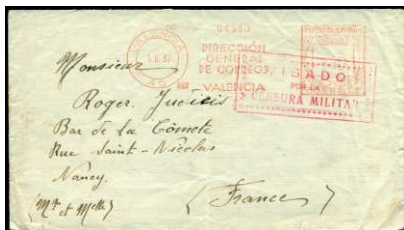 04580
VALENCIA
1.II.37
DIRECCIÓN
GENERAL
DE CORREOS
VALENCIA
SADO
POR LA
CENSURA MILITAR
Monsieur
Roger
Bar de la Comète
Rue Saint-Nicolas
Nancy.
(Mr et Melle)
(France)